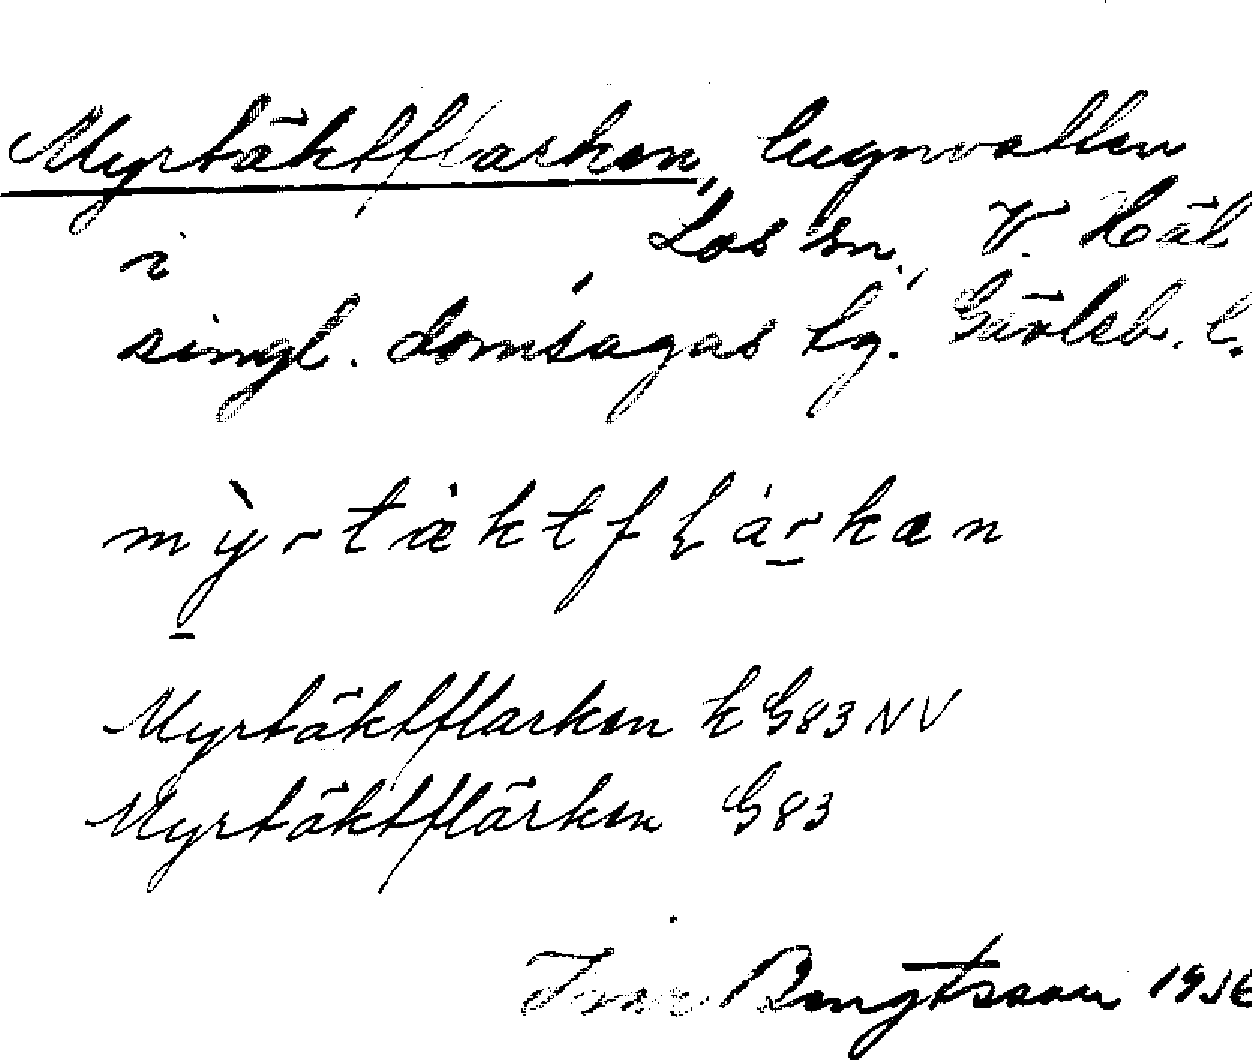 Myrtäktflarken, lugnvatten
i Los sn., V. Häl
singl. domsagas tg. Gävleb. l.
mỳrtæktflárkæn
Myrtäktflarken k G83 NV
Myrtäktflärken G83
Ivar Bengtsson 1936